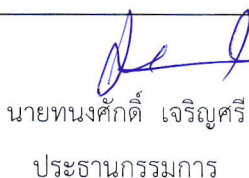 นายทนงศักดิ์ เจริญศรี
ประธานกรรมการ